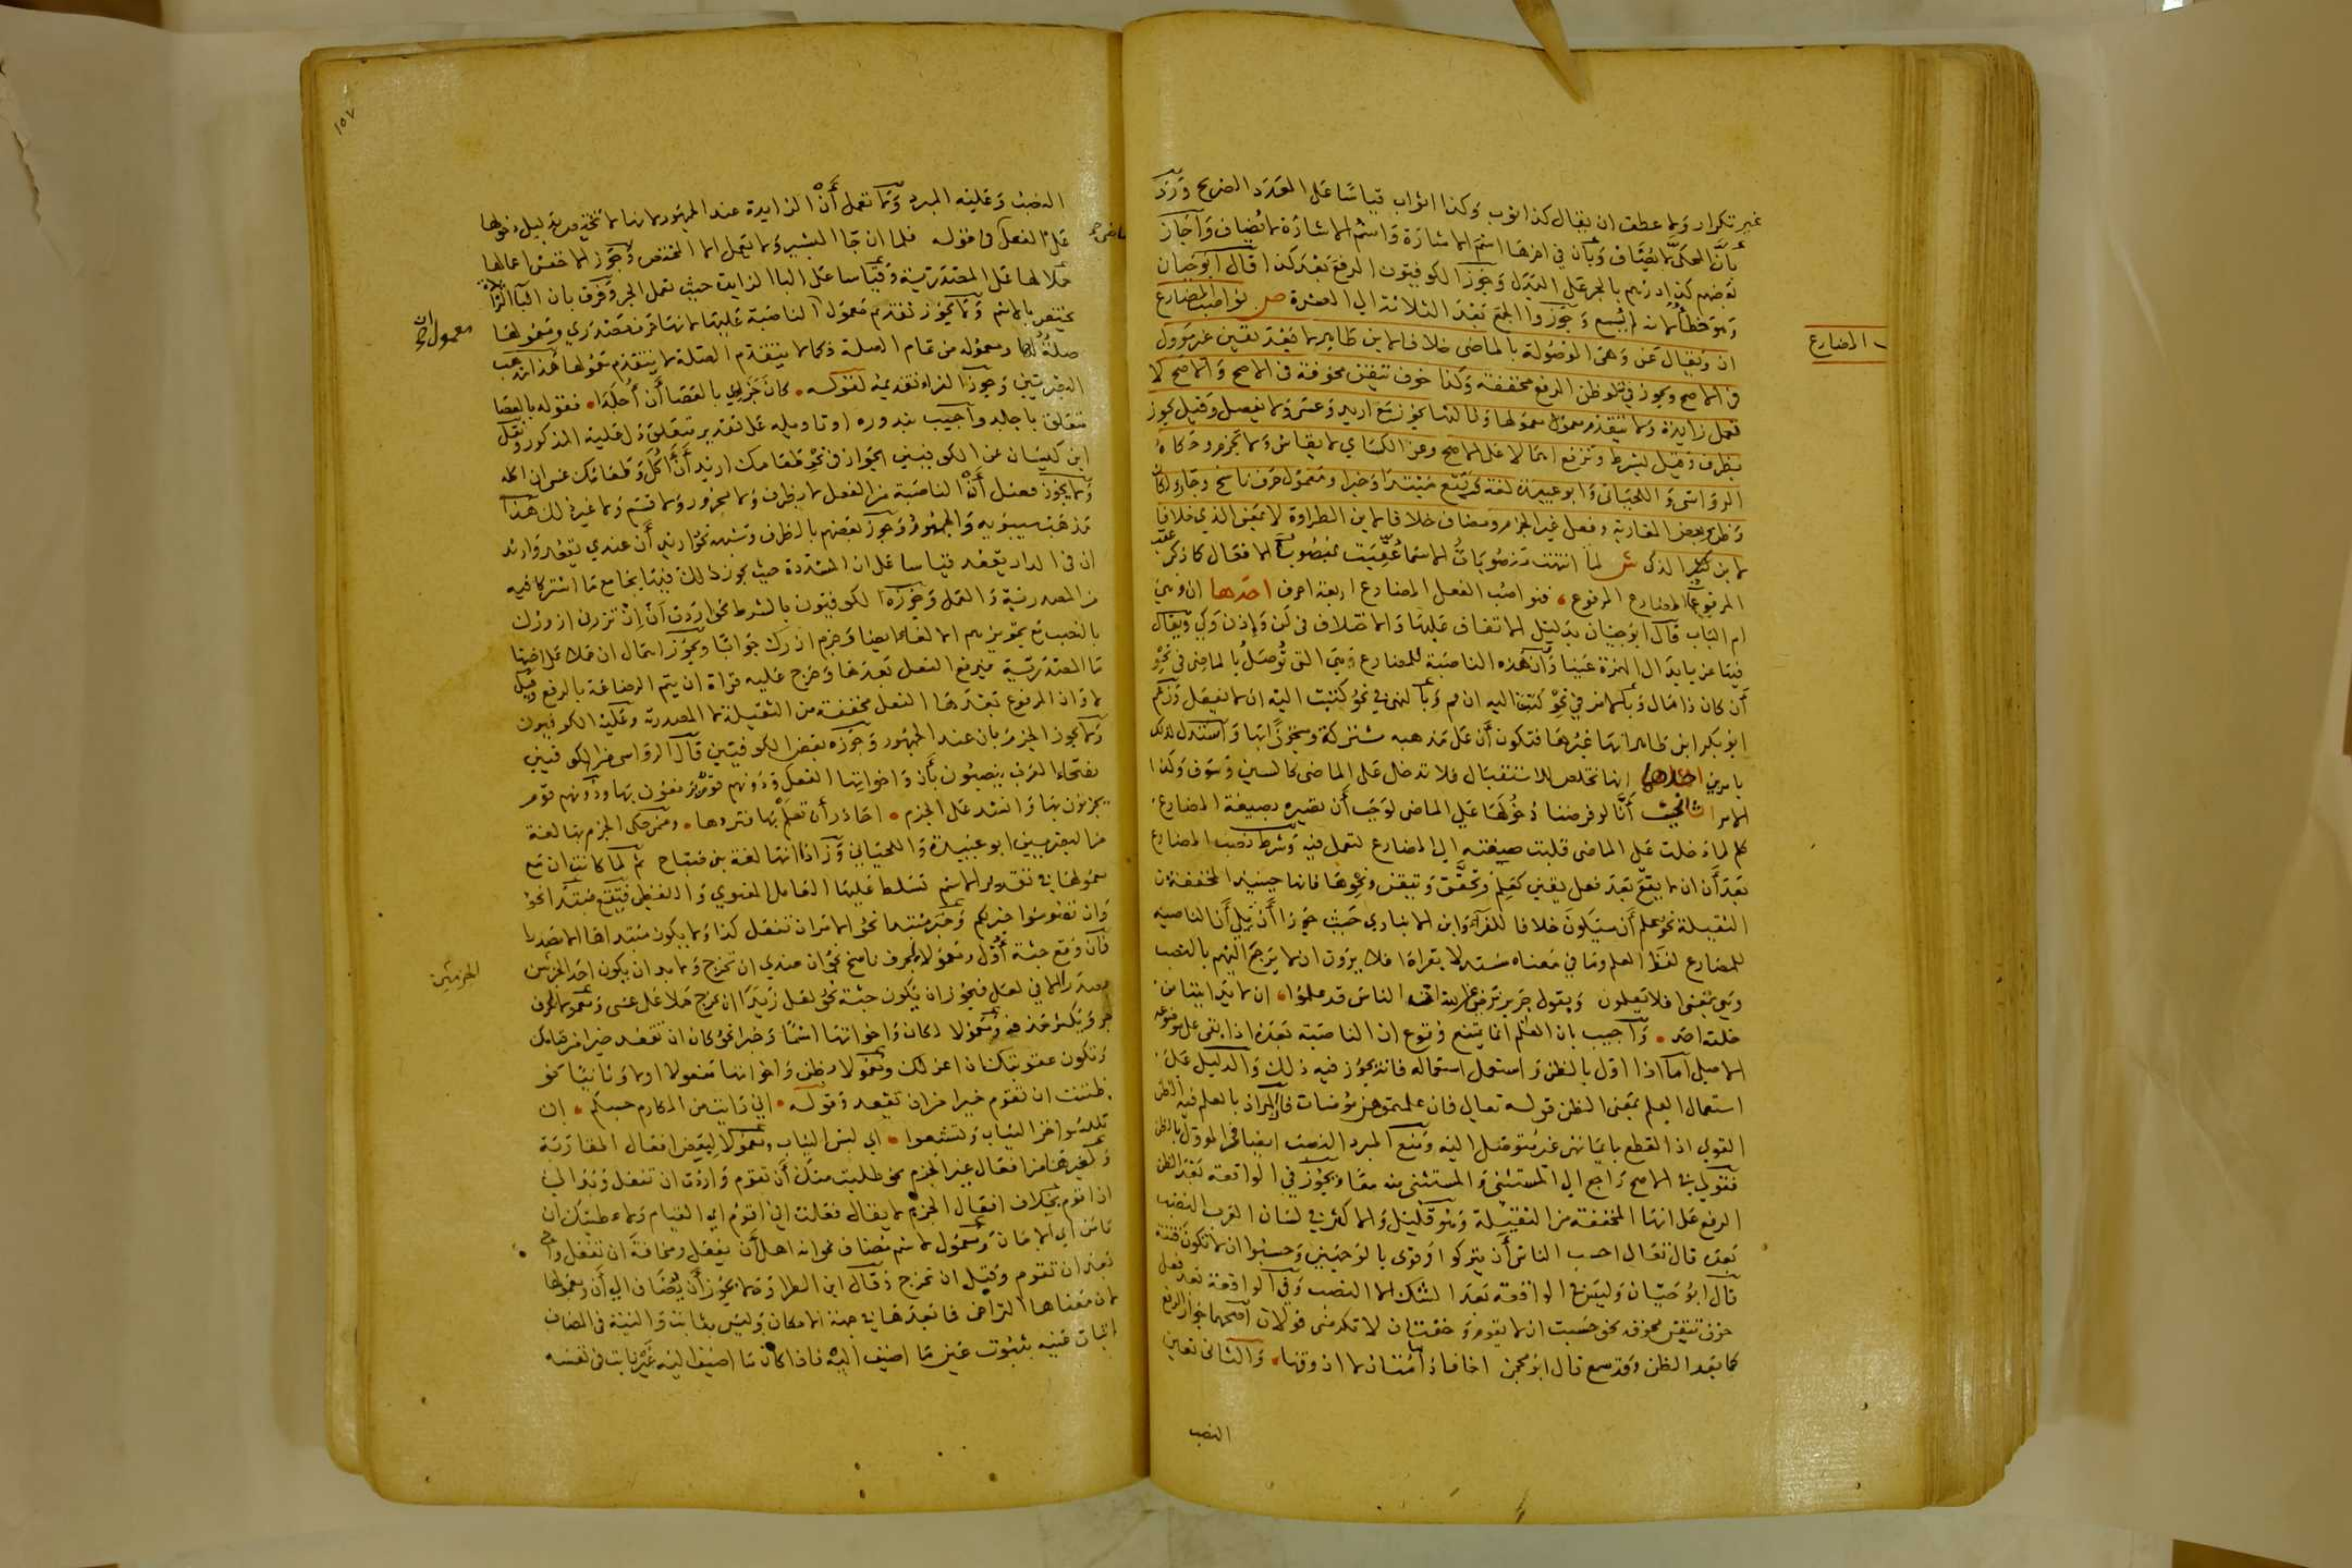 غير تكرار ولا عطف ان يقال كذا ثوب وكذا اثواب قياسا على العدد الصريح ورد
بان المحكى لا يضاف وبان في اخرها اسم الاشارة واسم الاشارة لا يضاف واجاز
بعضهم كذا درهم بالجر على البدل وجوز الكوفيون الرفع بعد كذا قال ابو حيان
وهو خطأ لانه لم يسمع وجوزوا الجمع بعد الثلاثة الى العشرة ص نواصب المضارع
المضارع
ان ويقال عن وهى الموصولة بالماضى خلافا لابن طاهر لا بعد يقين غير مؤول
فى الاصح ويجوز في تلو ظن الرفع مخففة وكذا خوف تيقن مخوفه فى الاصح والاصح لا
تعمل زايدة ولا يتقدم معمول معمولها
بظرف وقيل بشرط وترفع اهمالا على الاصح وعن الكسائي لا يقاس ولا تجزم وحكاه
الرؤاسى واللحيانى وابو عبيدة لغة
وفعل غير الجزم ومضاف خلافا لابن الطراوة لا بمعنى الذي خلافا
لابن ش لما انتهت منصوبات الاسما عقبت بمنصوب الافعال كما ذكر عقب
المرفوع المضارع المرفوع فنواصب الفعل المضارع اربعة احرف احدها ان وهى
ام الباب قال ابو حيان بدليل الاتفاق عليها والاختلاف فى لن واذن وكي ويقال
فيها عن بابدال الهمزة عينا وان هذه الناصبة للمضارع هي التى توصل بالماضى فى نحو
أن كان ذا مال وبالامر في نحو كتبت اليه ان قم وبالنهى في نحو كتبت اليه ان لا تفعل وزعم
ابو بكر ابن طاهر انها غيرها فتكون أن على مذهبه مشتركة
بامرين احدها انها تخلص للاستقبال فلا تدخل على الماضى كالسين وسوف وكذا
الامر الثانى أنا لو فرضنا دخولها على الماضى لوجب أن تصيره بصيغة المضارع
كلم لما دخلت على الماضى قلبت صيغته الى المضارع لتعمل فيه وشرط نصب المضارع
بعد أن ان لا يقع بعد فعل يقين كعلم وتحقق وتيقن ونحوها فانها حينئذ المخففة من
الثقيلة نحو علم أن سيكون خلافا للفراء وابن الانباري حيث جوزا أن تلي أن الناصبة
للمضارع لفظ العلم وما في معناه مستدلا بقراءة افلا يرون ان لا يرجع اليهم بالنصب
وبقول جرير نرضى عن الله ان الناس قد علموا ان لا يدانينا من
خلقه احد واجيب بان العلم انما يمتنع وقوع ان الناصبة بعده اذا بقى على موضوعه
الاصيل اما اذا اول بالظن واستعمل استعماله فانه يجوز فيه ذلك والدليل على
استعمال العلم بمعنى الظن قوله تعالى فان علمتموهن مؤمنات فالمراد بالعلم فيه الظن
القوي اذ القطع بايمانهن غير متوصل اليه ومنع المبرد النصب ايضا فى المؤول بالظن
فقولي فى الاصح راجع الى المستثنى والمستثنى منه معا ويجوز في الواقعة بعد الظن
الرفع على انها المخففة من الثقيلة وهو قليل والاكثر في لسان العرب النصب
بعده قال تعالى احسب الناس أن يتركوا وقرى بالوجهين وحسبوا ان لا تكون فتنة
قال ابو حيان وليس في الواقعة بعد الشك الا النصب وفي الواقعة بعد فعل
خوف تيقن مخوفه نحو خشيت ان لا تقوم وخفت ان لا تكرمنى قولان اصحهما جواز الرفع
كما بعد الظن وقد سمع قال ابو محجن اخاف اذا ما مت ان لا اذوقها والثانى تعين
النصب
١٥٧
النصب وعليه المبرد ولا تعمل أن الزايدة عند الجمهور لانها لا تختص بدليل دخولها
على الفعل الماضى فى قوله فلما ان جا البشير ولا تعمل الا المختص وجوز الاخفش اعمالها
حملا لها على المصدرية وقياسا على البا الزايدة حيث تعمل الجر وفرق بان البا الزايدة
تختص بالاسم ولا يجوز تقديم معمول الناصبة عليها لانها حرف مصدري ومعمولها
معمول ان
صلة لها ومعموله من تمام الصلة فكما لا تتقدم الصلة لا يتقدم معمولها هذا مذهب
البصريين وجوز الفراء تقديمه لقوله كان جزاي بالعصا أن أجلدا فقوله بالعصا
متعلق باجلد واجيب بندوره او تاويله على تقدير متعلق دل عليه المذكور ونقل
ابن كيسان عن الكوفيين الجواز في نحو طعامك اريد أن آكل وطعامك عسى ان آكله
ولا يجوز فصل أن الناصبة من الفعل لا بظرف ولا مجرور ولا قسم ولا غير ذلك هذا
مذهب سيبويه والجمهور وجوز بعضهم بالظرف وشبهه نحو اريد أن عندي تقعد واريد
ان فى الدار تقعد قياسا على ان المشددة حيث يجوز ذلك فيها بجامع ما اشتركا فيه
من المصدرية والعمل وجوزه الكوفيون بالشرط نحو اردت أن إن تزرني ازورك
بالنصب مع تجويزهم الالغا ايضا وجزم ازرك جوابا ويجوز اهمال ان حملا على اختها
ما المصدرية فيرفع الفعل بعدها وخرج عليه قراة ان يتم الرضاعة بالرفع وقيل
لا وان المرفوع بعدها الفعل مخففة من الثقيلة لا المصدرية وعليه الكوفيون
ولا يجوز الجزم بان عند الجمهور وجوزه بعض الكوفيين قال الرؤاسى من الكوفيين
فصحاء العرب ينصبون بأن واخواتها الفعل ودونهم قوم يرفعون بها ودونهم قوم
يجزمون بها وانشد على الجزم احاذر أن تعلم بها فتردها وممن حكى الجزم بها لغة
من البصريين ابو عبيدة واللحياني وزادا انها لغة بنى صباح ثم لما كانت ان مع
معمولها في تقدير الاسم تسلط عليها العامل المعنوي واللفظى فتقع مبتدأ نحو
وان تصوموا خير لكم وخبر مبتدا نحو الامر ان تفعل كذا ولا يكون مبتداها الا مصدرا
فان وقع جثة أول ومعمولا لحرف ناسخ نحو ان عندي ان تخرج ولا بد ان يكون احد الجزئين
الجزئين
مصدرا الا في لعل فيجوز ان يكون جثة نحو لعل زيدا ان يخرج حملا على عسى ومعمولا لحرف
جر ويكثر حذفه ومعمولا لكان واخواتها اسما وخبرا نحو كان ان تقعد خيرا من قيامك
وتكون عقوبتك ان اعزلك ومعمولا لظن واخواتها مفعولا اولا وثانيا نحو
ظننت ان تقوم خيرا من ان تقعد وقوله اني رايت من المكارم حسبكم ان
تلبسوا خز الثياب وتشبعوا اي لبس الثياب ومعمولا لبعض افعال المقاربة
ولغيرها من افعال غير الجزم نحو طلبت منك أن تقوم واردت ان تفعل وبدا لي
ان اقوم بخلاف افعال الجزم لا يقال فعلت ان اقوم اي القيام ولا اعطيتك ان
تامن اي الامان ومعمول لاسم مضاف نحو انه اهل أن يفعل ومخافة ان تفعل
بعد ان تقوم وقبل ان تخرج وقال ابن الطراوة لا يجوز أن يضاف الى أن ومعمولها
لان معناها التراخى فما بعدها في جهة الامكان وليس بثابت والنية فى المضاف
اثبات عينه بثبوت عين ما اضيف اليه فاذا كان ما اضيف اليه غير ثابت فى نفسه